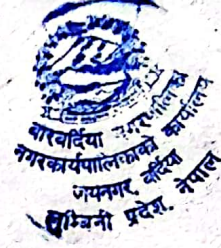 बारबर्दिया नगरपालिका
नगरकार्यपालिकाको कार्यालय
जयनगर, बर्दिया
लुम्बिनी प्रदेश, नेपाल